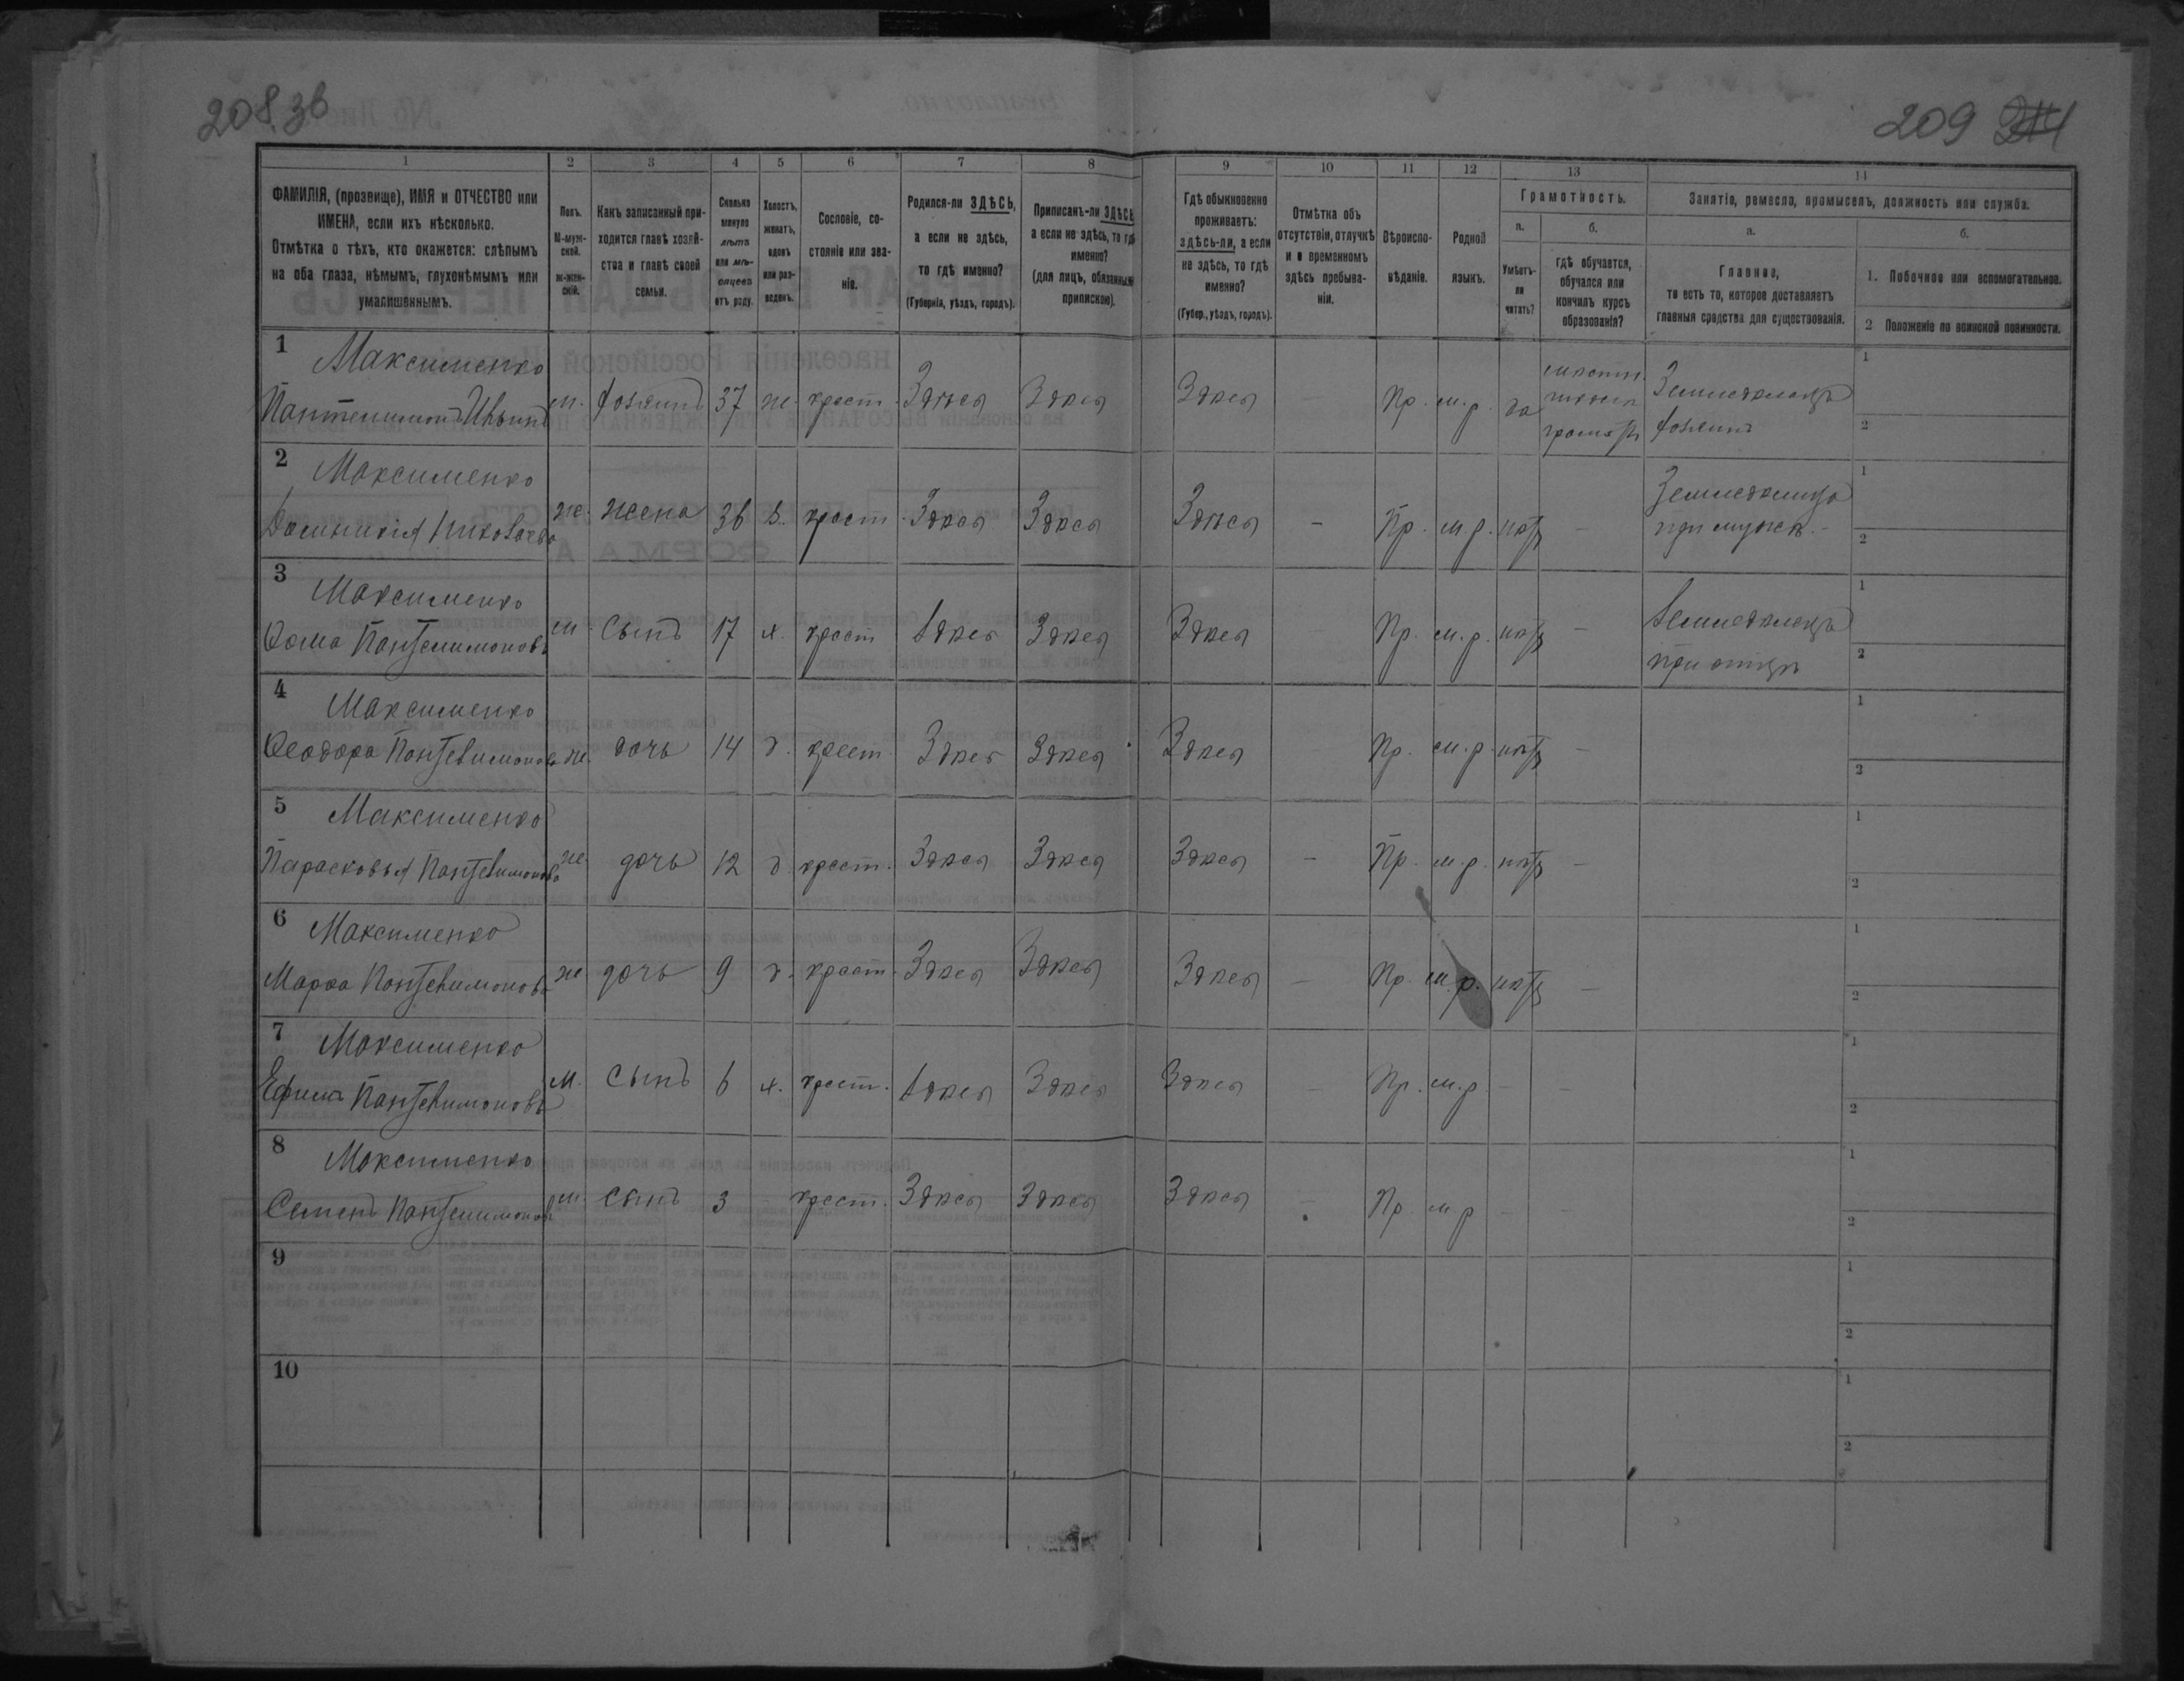 208.зв
209
1 2 3 4 5 6 7 8 9 10 11 12 13 14
ФАМИЛІЯ, (прозвище), ИМЯ и ОТЧЕСТВО или
ИМЕНА, если ихъ нѣсколько.
Отмѣтка о тѣхъ, кто окажется: слѣпымъ
на оба глаза, нѣмымъ, глухонѣмымъ или
умалишеннымъ.
Полъ.
М-муж-
ской.
ж-жен-
скій.
Какъ записанный при-
ходится главѣ хозяй-
ства и главѣ своей
семьи.
Сколько
минуло
лѣтъ
или мѣ-
сяцевъ
отъ роду.
Холостъ,
женатъ,
вдовъ
или раз-
веденъ.
Сословіе, со-
стояніе или зва-
ніе.
Родился-ли ЗДѢСЬ,
а если не здѣсь,
то гдѣ именно?
(Губернія, уѣздъ, городъ).
Приписанъ-ли ЗДѢСЬ,
а если не здѣсь, то гдѣ
именно?
(для лицъ, обязанныхъ
припискою).
Гдѣ обыкновенно
проживаетъ:
здѣсь-ли, а если
не здѣсь, то гдѣ
именно?
(Губер., уѣздъ, городъ).
Отмѣтка объ
отсутствіи, отлучкѣ
и о временномъ
здѣсь пребыва-
ніи.
Вѣроиспо-
вѣданіе.
Родной
языкъ.
Грамотность.
а.
Умѣетъ-
ли
читать?
б.
гдѣ обучается,
обучался или
кончилъ курсъ
образованія?
Занятія, ремесло, промыселъ, должность или служба.
а.
Главное,
то есть то, которое доставляетъ
главныя средства для существованія.
б.
1. Побочное или вспомогательное.
2 Положеніе по воинской повинности.
1 Максименко
Пантелимонъ Ивановъ м. хозяинъ 37 ж. крест. Здѣсь Здѣсь Здѣсь Пр. м.р. да
Земледѣлецъ
хозяинъ
1
2
2 Максименко
Доминикія ж. жена 36 з. крест. Здѣсь Здѣсь Здѣсь - Пр. м.р. нѣтъ -
Земледѣлица
при мужѣ.
1
2
3 Максименко
Фома Пантелимоновъ м. сынъ 17 х. крест Здѣсь Здѣсь Здѣсь Пр. м.р. нѣтъ -
Земледѣлецъ
при отцѣ
1
2
4 Максименко
Феодора Пантелимонова ж. дочь 14 д. крест. Здѣсь Здѣсь Здѣсь Пр. м.р. нѣтъ -
1
2
5 Максименко
Парасковья Пантелимонова ж. дочь 12 д. крест. Здѣсь Здѣсь Здѣсь - Пр. м.р. нѣтъ -
1
2
6 Максименко
Марфа Пантелимонова ж дочь 9 д. крест. Здѣсь Здѣсь Здѣсь - Пр. м.р. нѣтъ -
1
2
7 Максименко
Ефимъ Пантелимоновъ м. сынъ 6 х. крест. Здѣсь Здѣсь Здѣсь - Пр. м.р. - -
1
2
8 Максименко
Семенъ Пантелимоновъ м. сынъ 3 - крест. Здѣсь Здѣсь Здѣсь - Пр м р - -
1
2
9
1
2
10
1
2